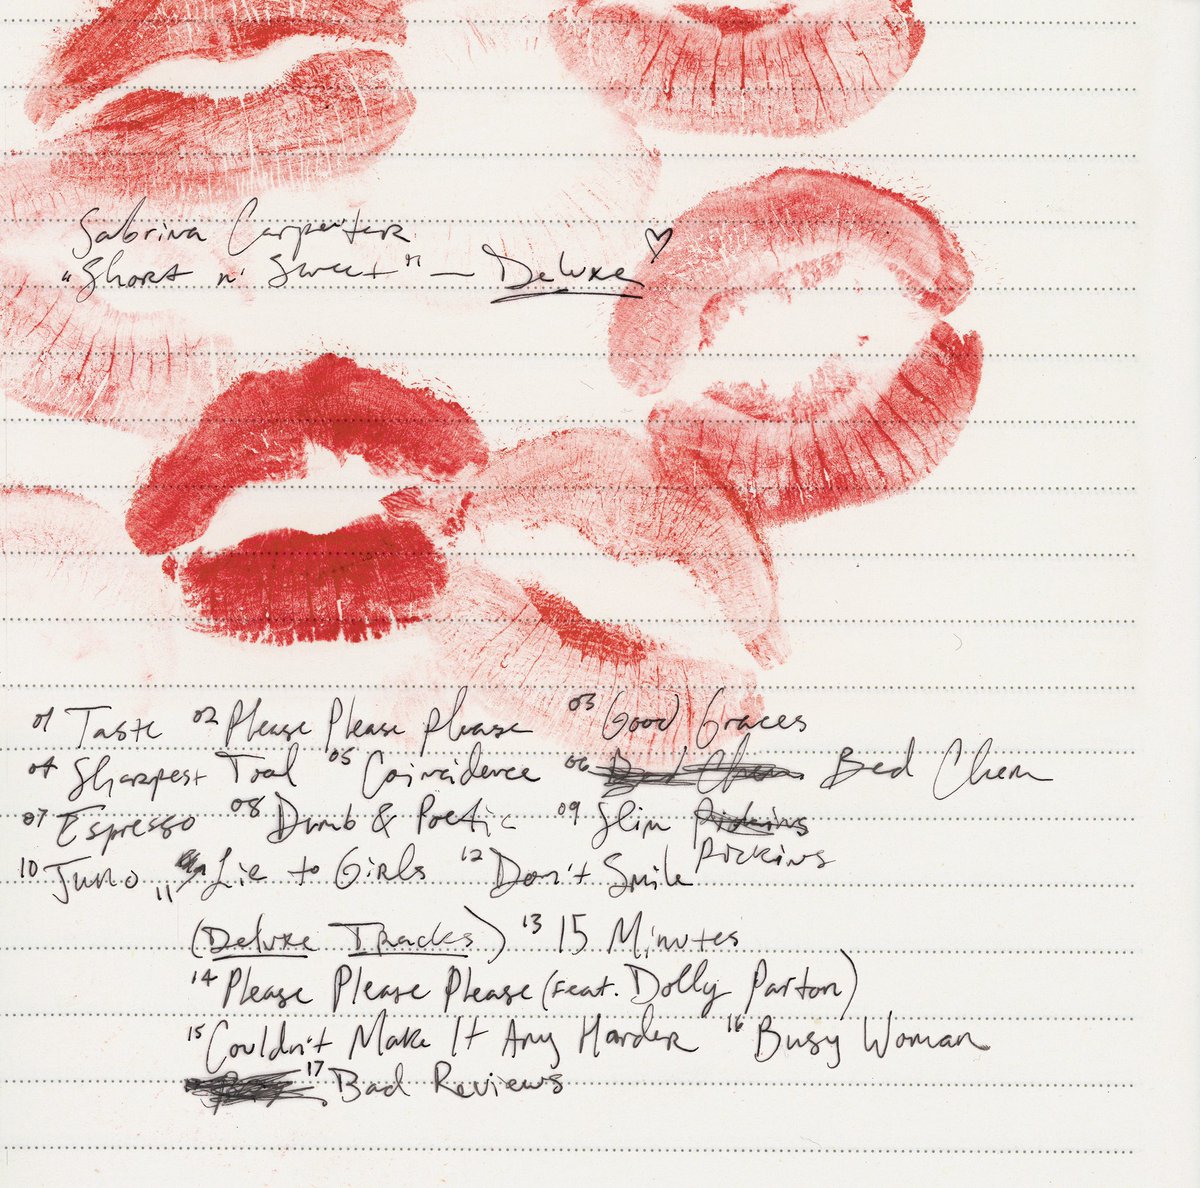 Sabrina Carpenter
"Short n' Sweet" — Deluxe
01 Taste 02 Please Please Please 03 Good Graces
04 Sharpest Tool 05 Coincidence 06 Bed Chem Bed Chem
07 Espresso 08 Dumb & Poetic 09 Slim Pickins
Pickins
10 Juno 11 Lie to Girls 12 Don't Smile
(Deluxe Tracks) 13 15 Minutes
14 Please Please Please (feat. Dolly Parton)
15 Couldn't Make It Any Harder 16 Busy Woman
17 Bad Reviews